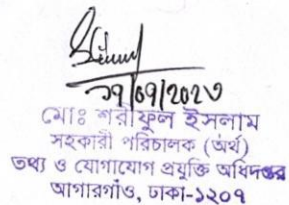 ১৭/০৭/২০২৩
মোঃ শরীফুল ইসলাম
সহকারী পরিচালক (অর্থ)
তথ্য ও যোগাযোগ প্রযুক্তি অধিদপ্তর
আগারগাঁও, ঢাকা-১২০৭